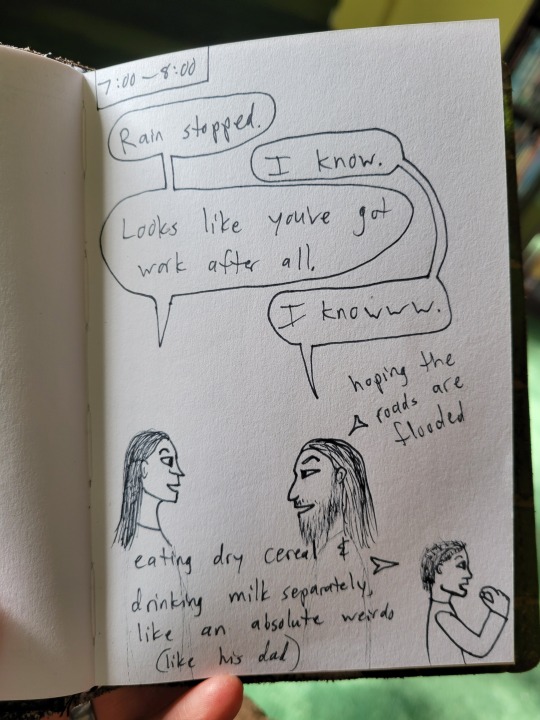 7:00 – 8:00
Rain stopped.
I know.
Looks like you've got
work after all.
I knowww.
hoping the
roads are
flooded
eating dry cereal &
drinking milk separately,
like an absolute weirdo
(like his dad)